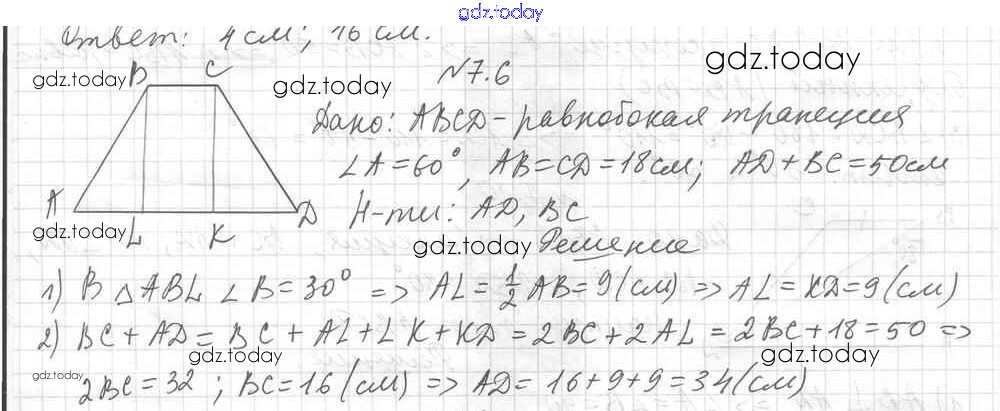 gdz.today
Ответ: 4 см; 16 см.
gdz.today
B C
gdz.today
gdz.today
№7.6
Дано: ABCD - равнобокая трапеция
∠A = 60°, AB = CD = 18 см; AD + BC = 50 см
A L K D
gdz.today
Н-ти: AD, BC
gdz.today
Решение
1) В △ABL ∠B = 30° => AL = 1/2 AB = 9 (см) => AL = KD = 9 (см)
2) BC + AD = BC + AL + LK + KD = 2BC + 2AL = 2BC + 18 = 50 =>
gdz.today
gdz.today
gdz.today
2BC = 32; BC = 16 (см) => AD = 16 + 9 + 9 = 34 (см)